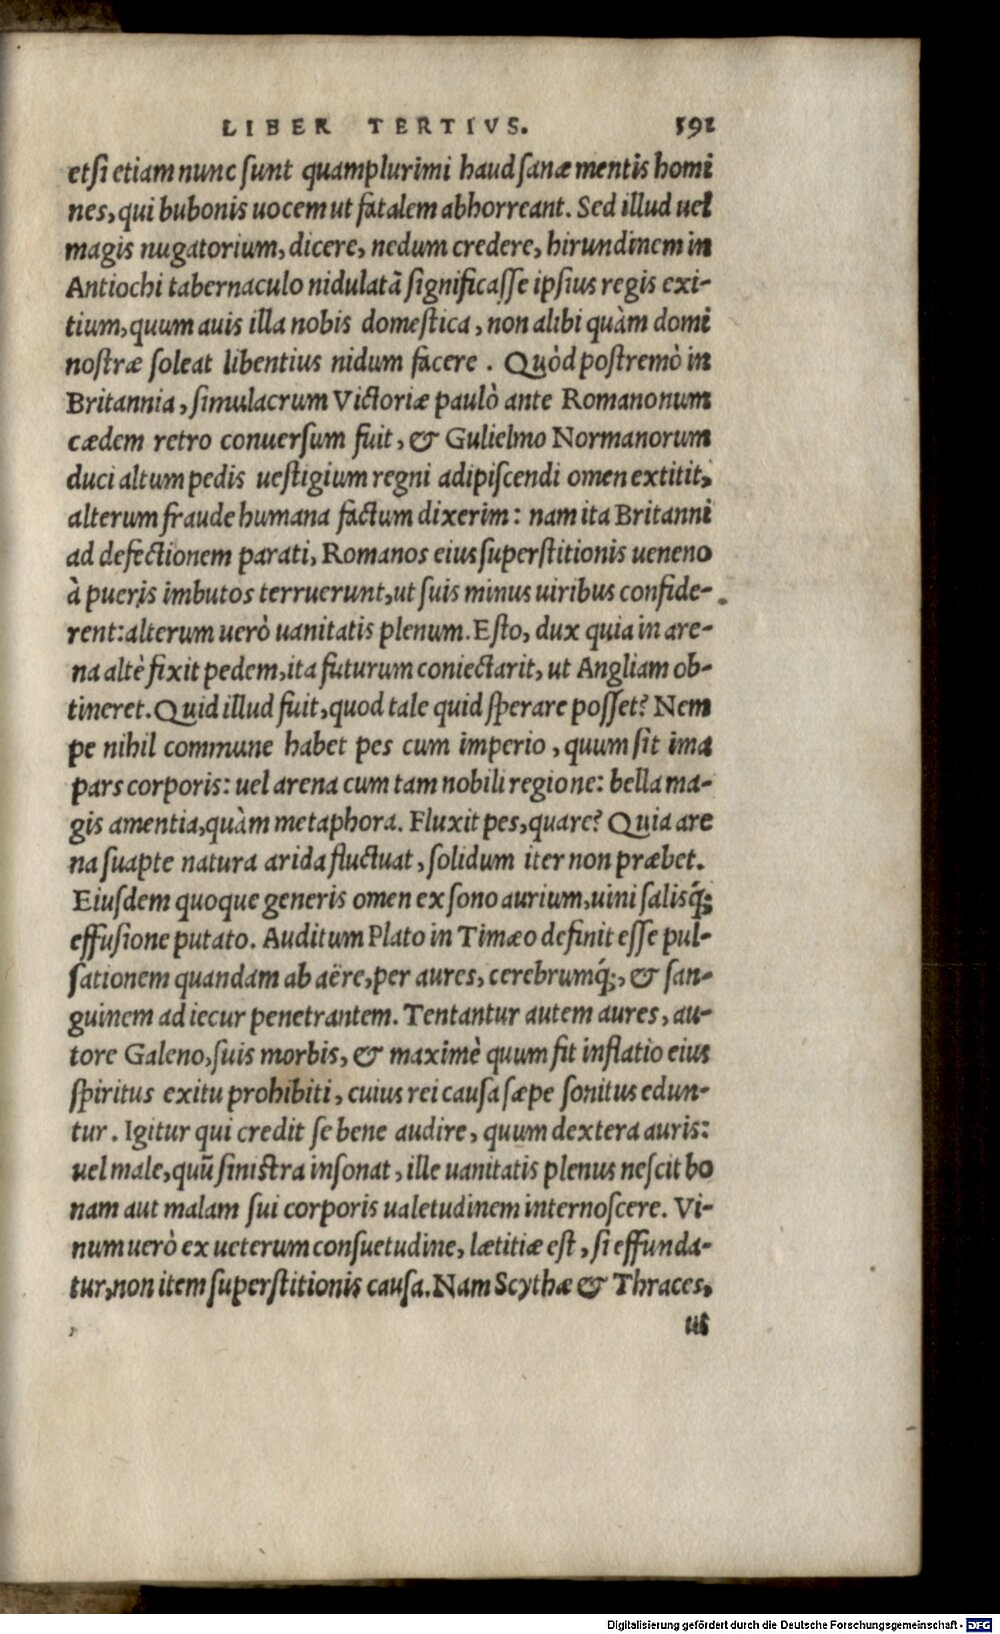 LIBER TERTIVS. 591
etsi etiam nunc sunt quamplurimi haud sanæ mentis homi
nes, qui bubonis uocem ut fatalem abhorreant. Sed illud uel
magis nugatorium, dicere, nedum credere, hirundinem in
Antiochi tabernaculo nidulatã significasse ipsius regis exi-
tium, quum auis illa nobis domestica, non alibi quàm domi
nostræ soleat libentius nidum facere. Quòd postremò in
Britannia, simulacrum Victoriæ paulò ante Romanonum
cædem retro conuersum fuit, & Gulielmo Normanorum
duci altum pedis uestigium regni adipiscendi omen extitit,
alterum fraude humana factum dixerim: nam ita Britanni
ad defectionem parati, Romanos eius superstitionis ueneno
à pueris imbutos terruerunt, ut suis minus uiribus confide-
rent: alterum uerò uanitatis plenum. Esto, dux quia in are-
na altè fixit pedem, ita futurum coniectarit, ut Angliam ob-
tineret. Quid illud fuit, quod tale quid sperare posset? Nem
pe nihil commune habet pes cum imperio, quum sit ima
pars corporis: uel arena cum tam nobili regione: bella ma-
gis amentia, quàm metaphora. Fluxit pes, quare? Quia are
na suapte natura arida fluctuat, solidum iter non præbet.
Eiusdem quoque generis omen ex sono aurium, uini salisq́;
effusione putato. Auditum Plato in Timæo definit esse pul-
sationem quandam ab aëre, per aures, cerebrumq́;, & san-
guinem ad iecur penetrantem. Tentantur autem aures, au-
tore Galeno, suis morbis, & maximè quum fit inflatio eius
spiritus exitu prohibiti, cuius rei causa sæpe sonitus edun-
tur. Igitur qui credit se bene audire, quum dextera auris:
uel male, quũ sinistra insonat, ille uanitatis plenus nescit bo
nam aut malam sui corporis ualetudinem internoscere. Vi-
num uerò ex ueterum consuetudine, lætitiæ est, si effunda-
tur, non item superstitionis causa. Nam Scythæ & Thraces,
Digitalisierung gefördert durch die Deutsche Forschungsgemeinschaft - DFG